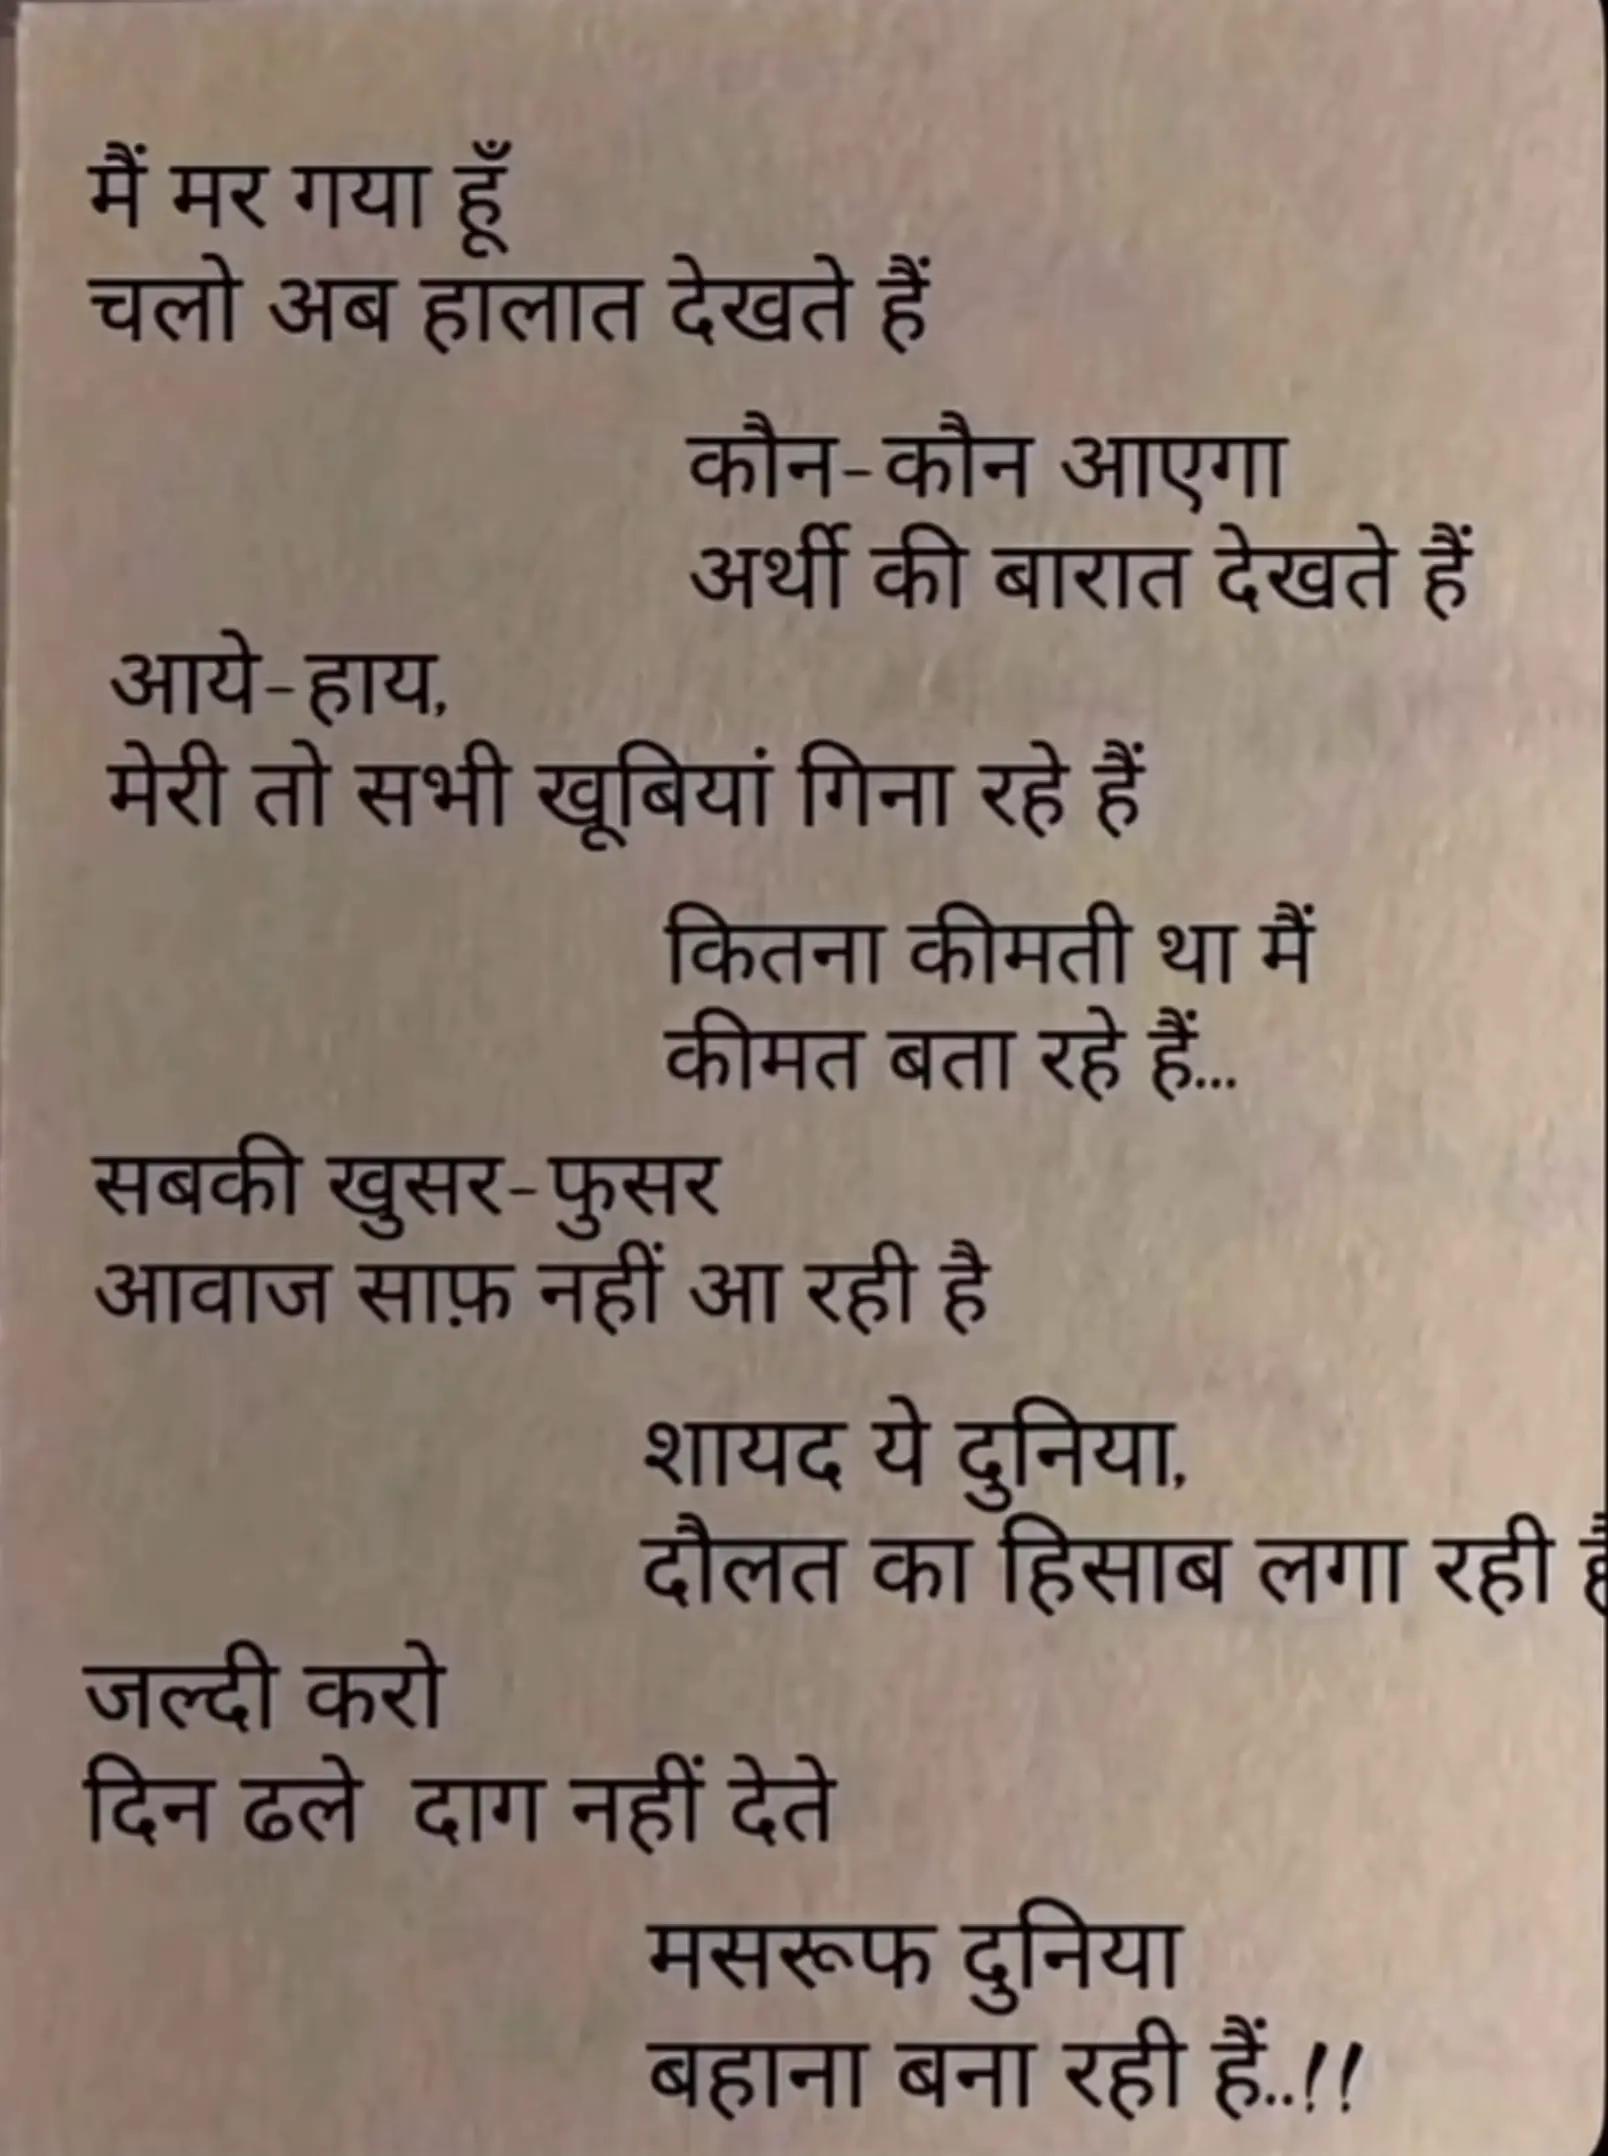 मैं मर गया हूँ
चलो अब हालात देखते हैं
कौन-कौन आएगा
अर्थी की बारात देखते हैं
आये-हाय,
मेरी तो सभी खूबियां गिना रहे हैं
कितना कीमती था मैं
कीमत बता रहे हैं...
सबकी खुसर-फुसर
आवाज साफ़ नहीं आ रही है
शायद ये दुनिया,
दौलत का हिसाब लगा रही
जल्दी करो
दिन ढले दाग नहीं देते
मसरूफ दुनिया
बहाना बना रही हैं..!!